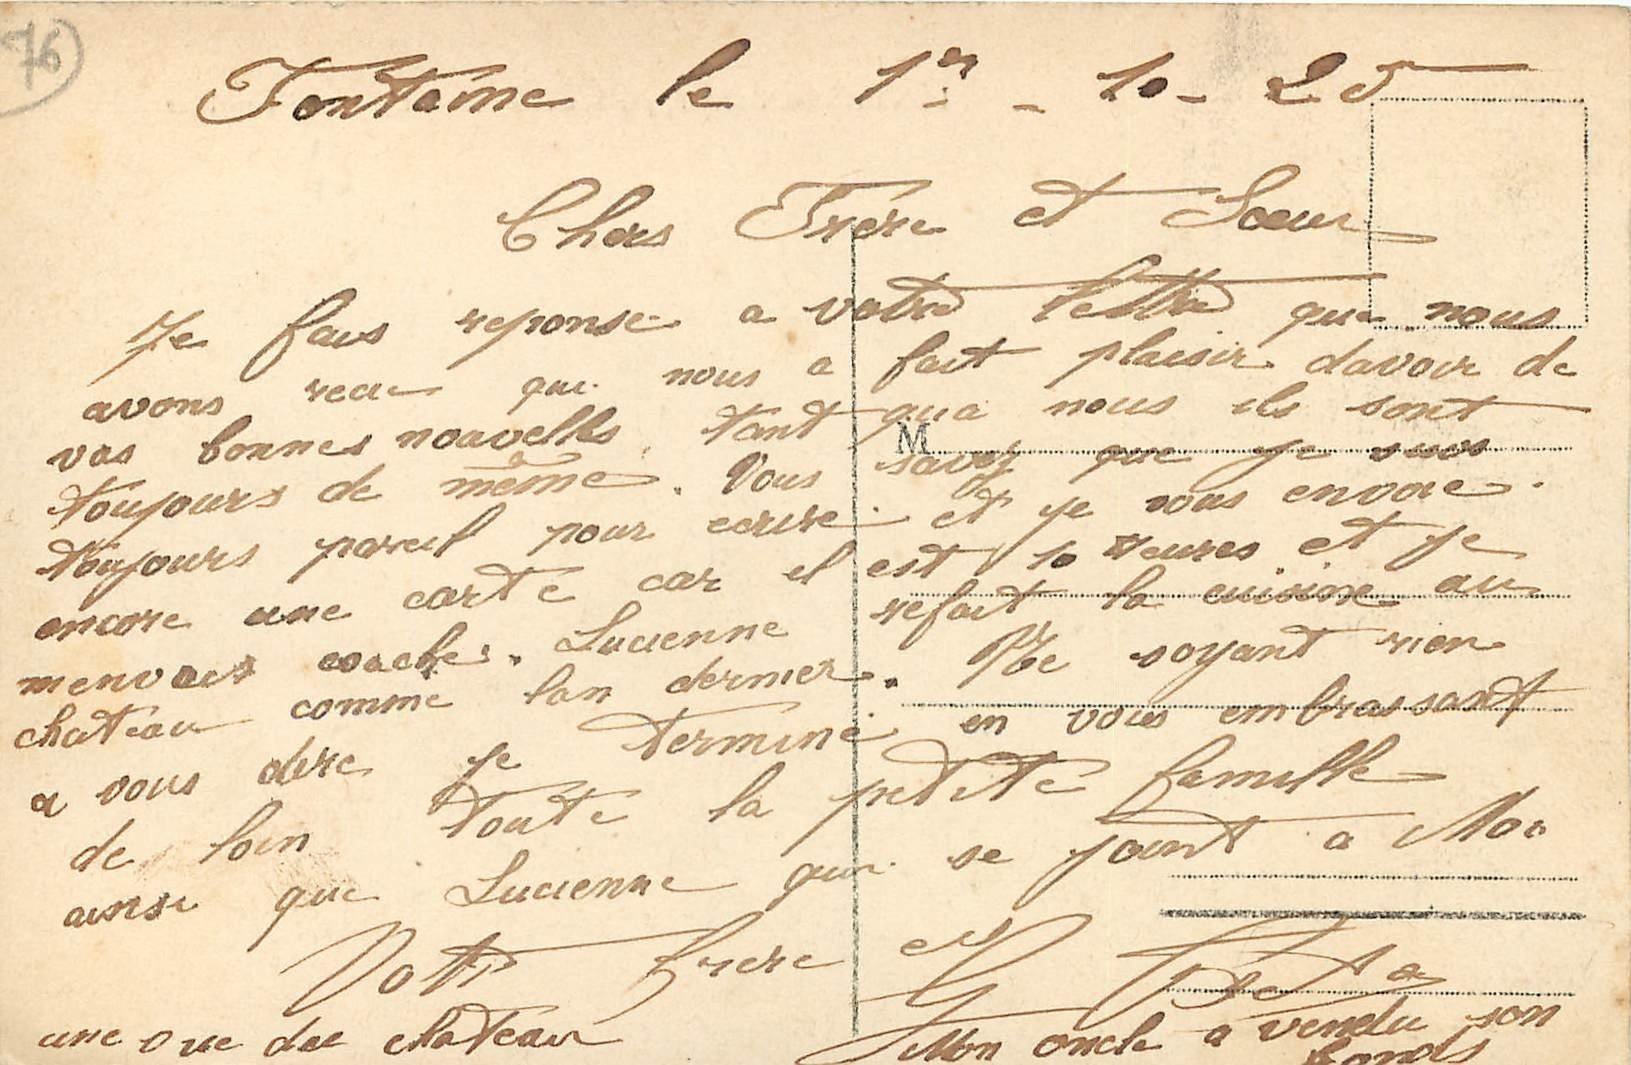 76
Fontaine le 1er - 10 - 25
Chers Frère et Soeur
Je fais reponse a votre lettre que nous
avons recue qui nous a fait plaisir davoir de
vos bonnes nouvelles. tant qua nous ils sont
M
toujours de même. Vous savez que je suis
toujours pareil pour ecrire. et je vous envoie.
encore une carte car il est 10 heures et je
menvais coucher. Lucienne refait la cuisine au
chateau comme lan dernier. Ne voyant rien
a vous dire je termine en vous embrassant
de loin toute la petite famille
ainsi que Lucienne qui se joint a Moi
Votre frere
une vue du chateau
Mon oncle a vendu son
fonds